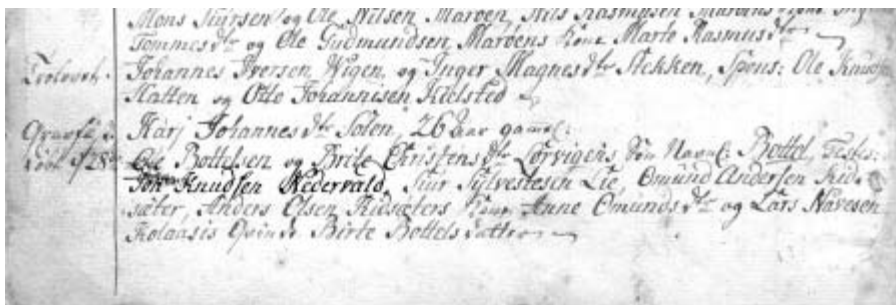 Mons Siursen og Ole Nilsen Maroen, Nils Rasmusen Maroens Kone
Tommesdtr og Ole Gudmundsen Maroens Kone Marte Rasmusdtr
Trolovet. Johannes Iversen Wigen, og Inger Magnesdtr Stekken, Spons: Ole Knuds
Natten og Otto Johannisen Kielsted
Karj Johannesdtr Solen, 26 aar gamel:
Ole Bottelsen og Brite Christensdtr Lorvigens Søn Navnl: Bottel, Testes:
Jon Knudsen Nedervald, Siur Sylvestesen Lie, Omund Andersen Kid-
sæter, Anders Olsen Kidsæters Kone Anne Omundsdtr og Lars Navesen
Kolaasis Qvinde Birte Bottelsdatter